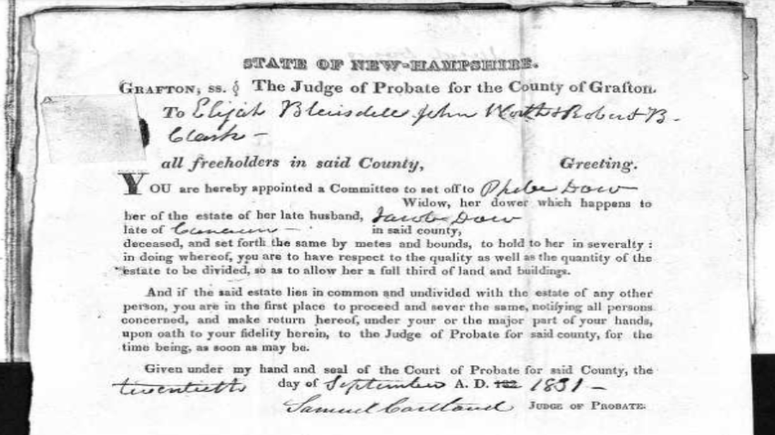 STATE OF NEW-HAMPSHIRE.
GRAFTON, ss. § The Judge of Probate for the County of Grafton.
To Elijah Blaisdell John Worth & Robert B.
Clark -
all freeholders in said County, Greeting.
YOU are hereby appointed a Committee to set off to Phebe Dow
Widow, her dower which happens to
her of the estate of her late husband, Jacob Dow
late of Canaan - in said county,
deceased, and set forth the same by metes and bounds, to hold to her in severalty :
in doing whereof, you are to have respect to the quality as well as the quantity of the
estate to be divided, so as to allow her a full third of land and buildings.
And if the said estate lies in common and undivided with the estate of any other
person, you are in the first place to proceed and sever the same, notifying all persons
concerned, and make return hereof, under your or the major part of your hands,
upon oath to your fidelity herein, to the Judge of Probate for said county, for the
time being, as soon as may be.
Given under my hand and seal of the Court of Probate for said County, the
twentieth day of September A. D. 1831 -
Samuel Cartland JUDGE OF PROBATE.